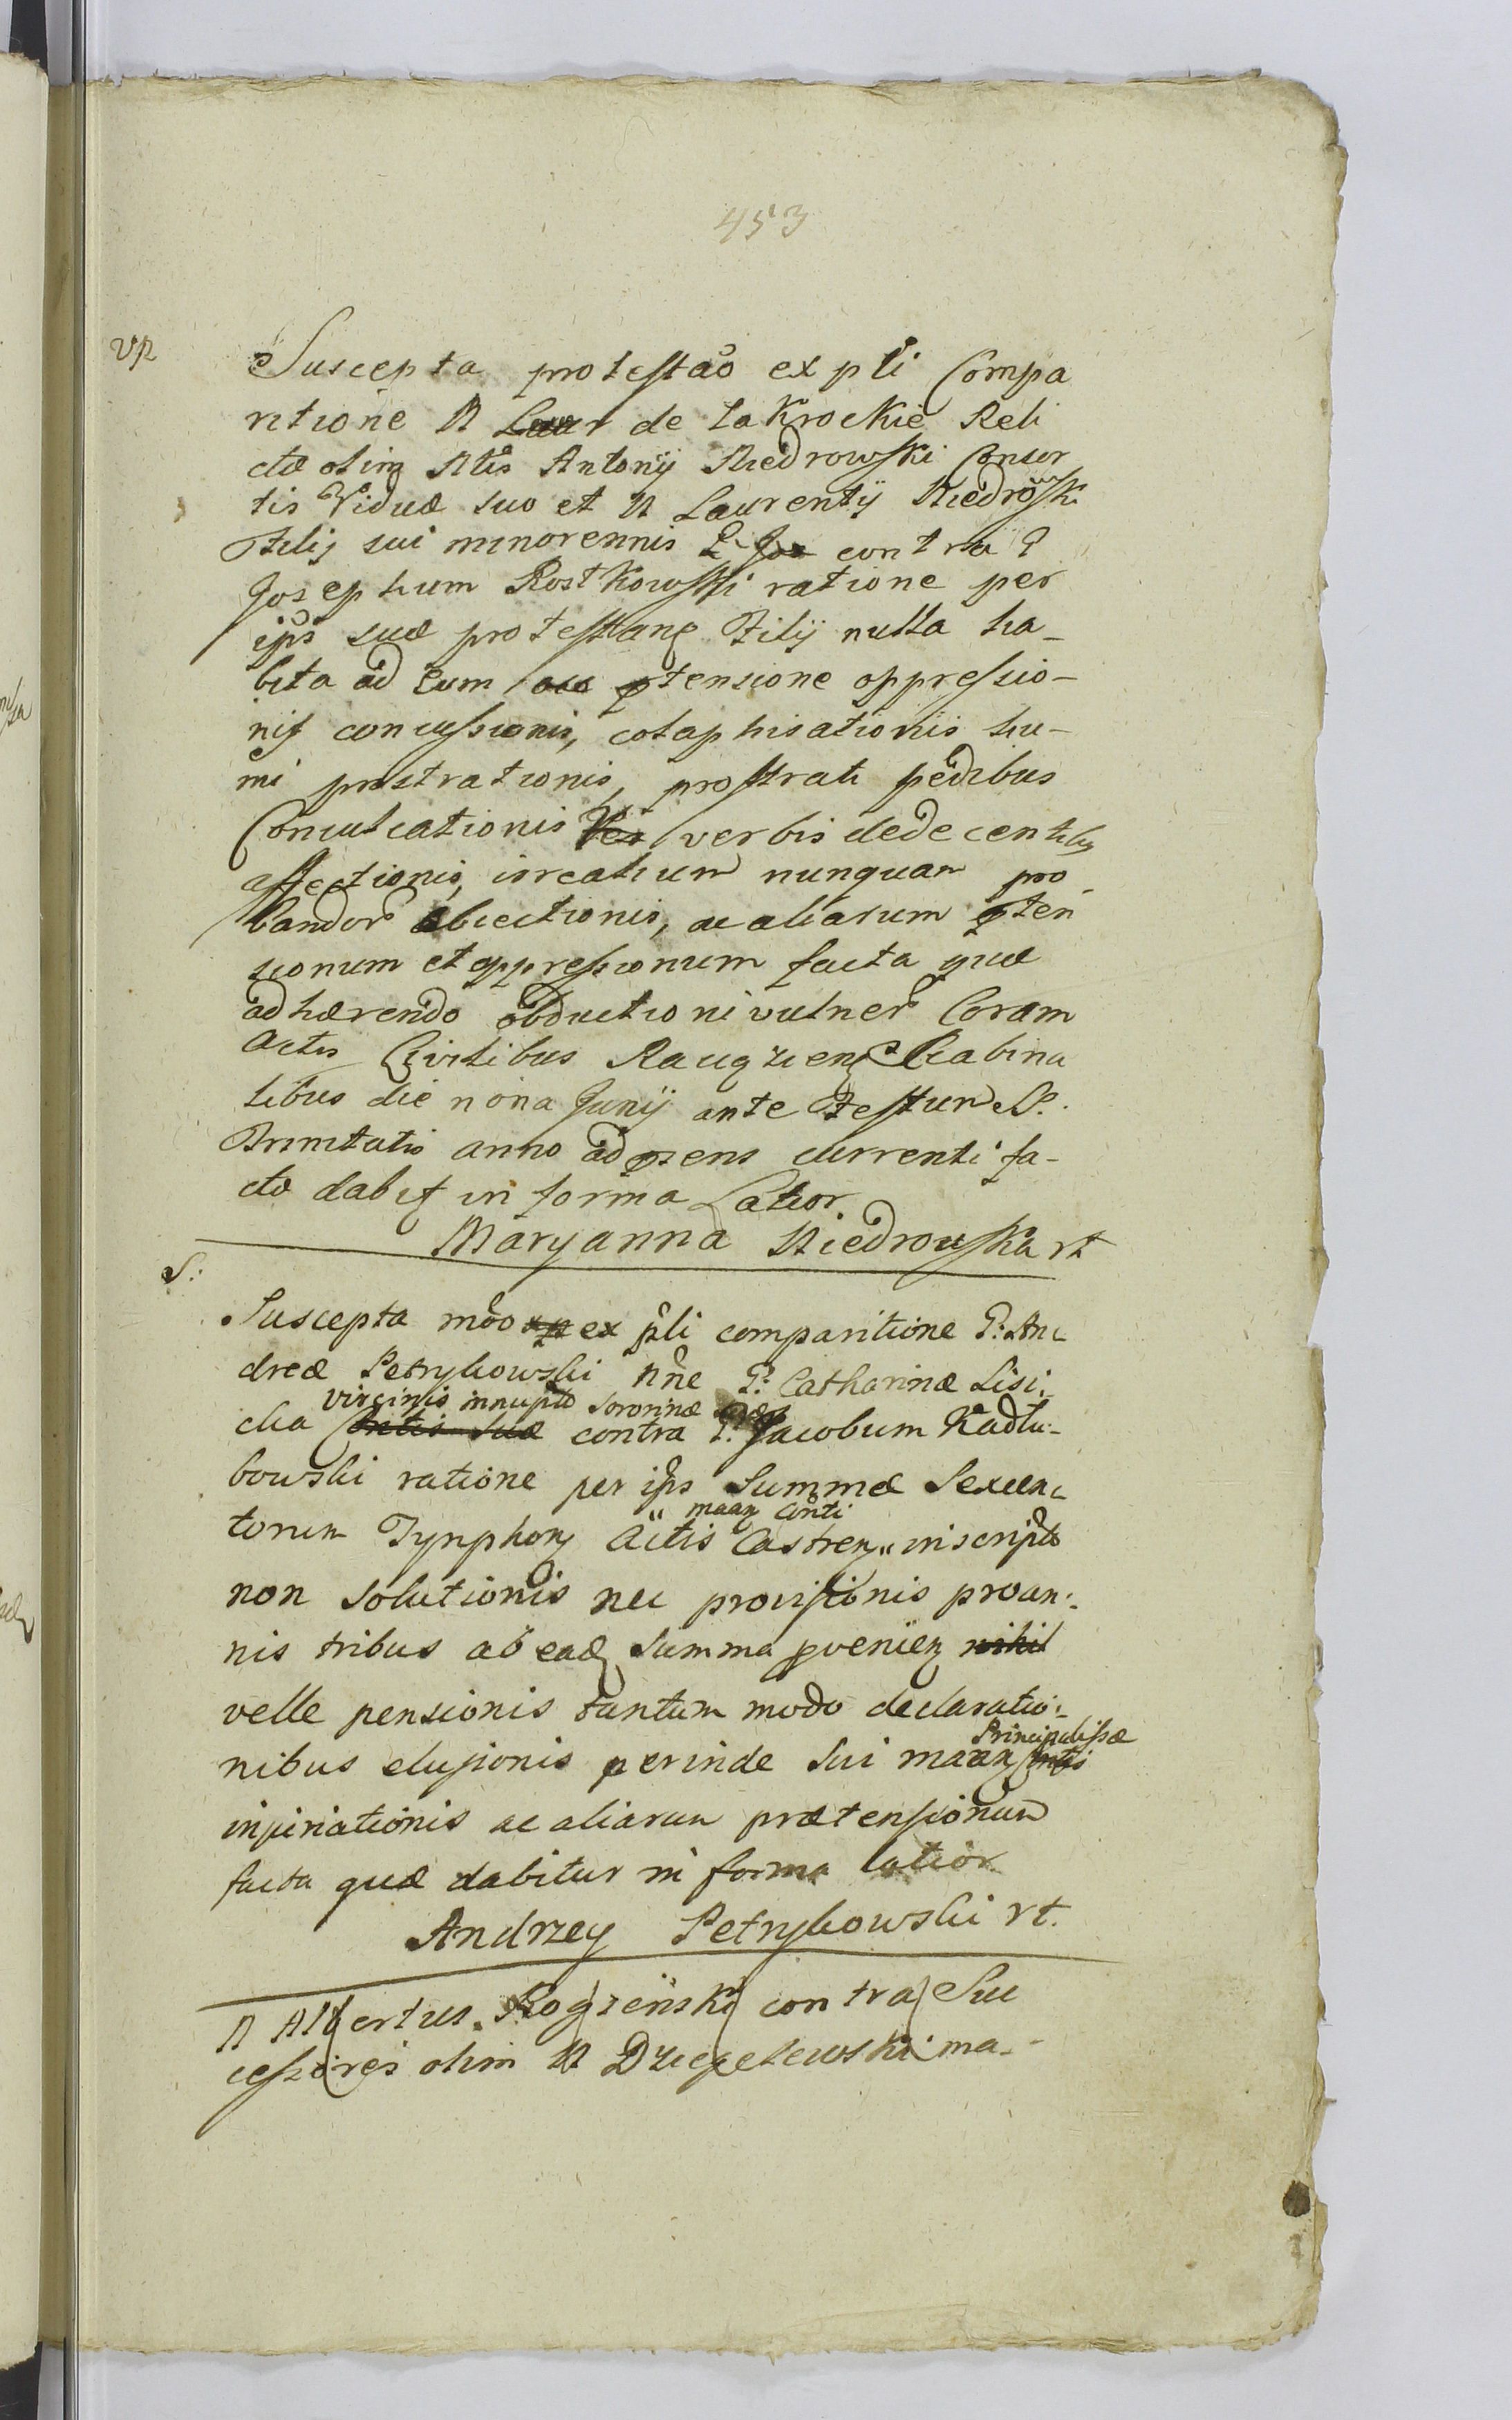 453
vp
Suscepta protestaõ ex pñli Compa
ritione N de Zakrockie Reli
ctæ olim Nlis Antonij Niedrowski Consor
tis Viduæ suo et N Laurentij Niedrowski
Filij sui minorennis contra P
Josephum Rostkowski ratione per
ips suæ protestanę Filij nulla ha-
bita ad eum ptensione oppressio-
nis concussionis, colaphisationis hu-
mi prostrationis, prostrati pedibus
Conculcationis Ver verbis dedecentibus
affectionis, irreatuum nunquam pro
bandor obiectionis, ac aliarum pten
sionum et oppressionum facta quæ
adhærendo obductioni vulner Coram
Actis Civilibus Raygrien Scabina
libus die nona Junij ante Festum S.
Trinitatis anno ad præsens currenti fa-
cto dabit in forma Latior.
Maryanna Niedrowska rt
S:
Suscepta mõo ex pñli comparitione P: An-
dreæ Petrykowski nñe P: Catharinæ Lisi-
virginis innuptæ Sororinæ suæ
cka Contis suæ contra P. Jacobum Kadłu-
bowski ratione per ips Summæ Sexcen-
maan Conti
torum Tynphon Actis Castren inscriptæ
non solutionis nec provisionis pro an-
nis tribus ab ead Summa pvenien nihil
velle pensionis tantum modo declaratio-
Principalissæ
nibus elusionis perinde sui maan
injuriationis ac aliarum prætensionum
facta quæ dabitur in forma latior
Andrzey Petrykowski rt.
N Albertus Rogzienski contra Suc
cessores olim N Dziegelewski ma-